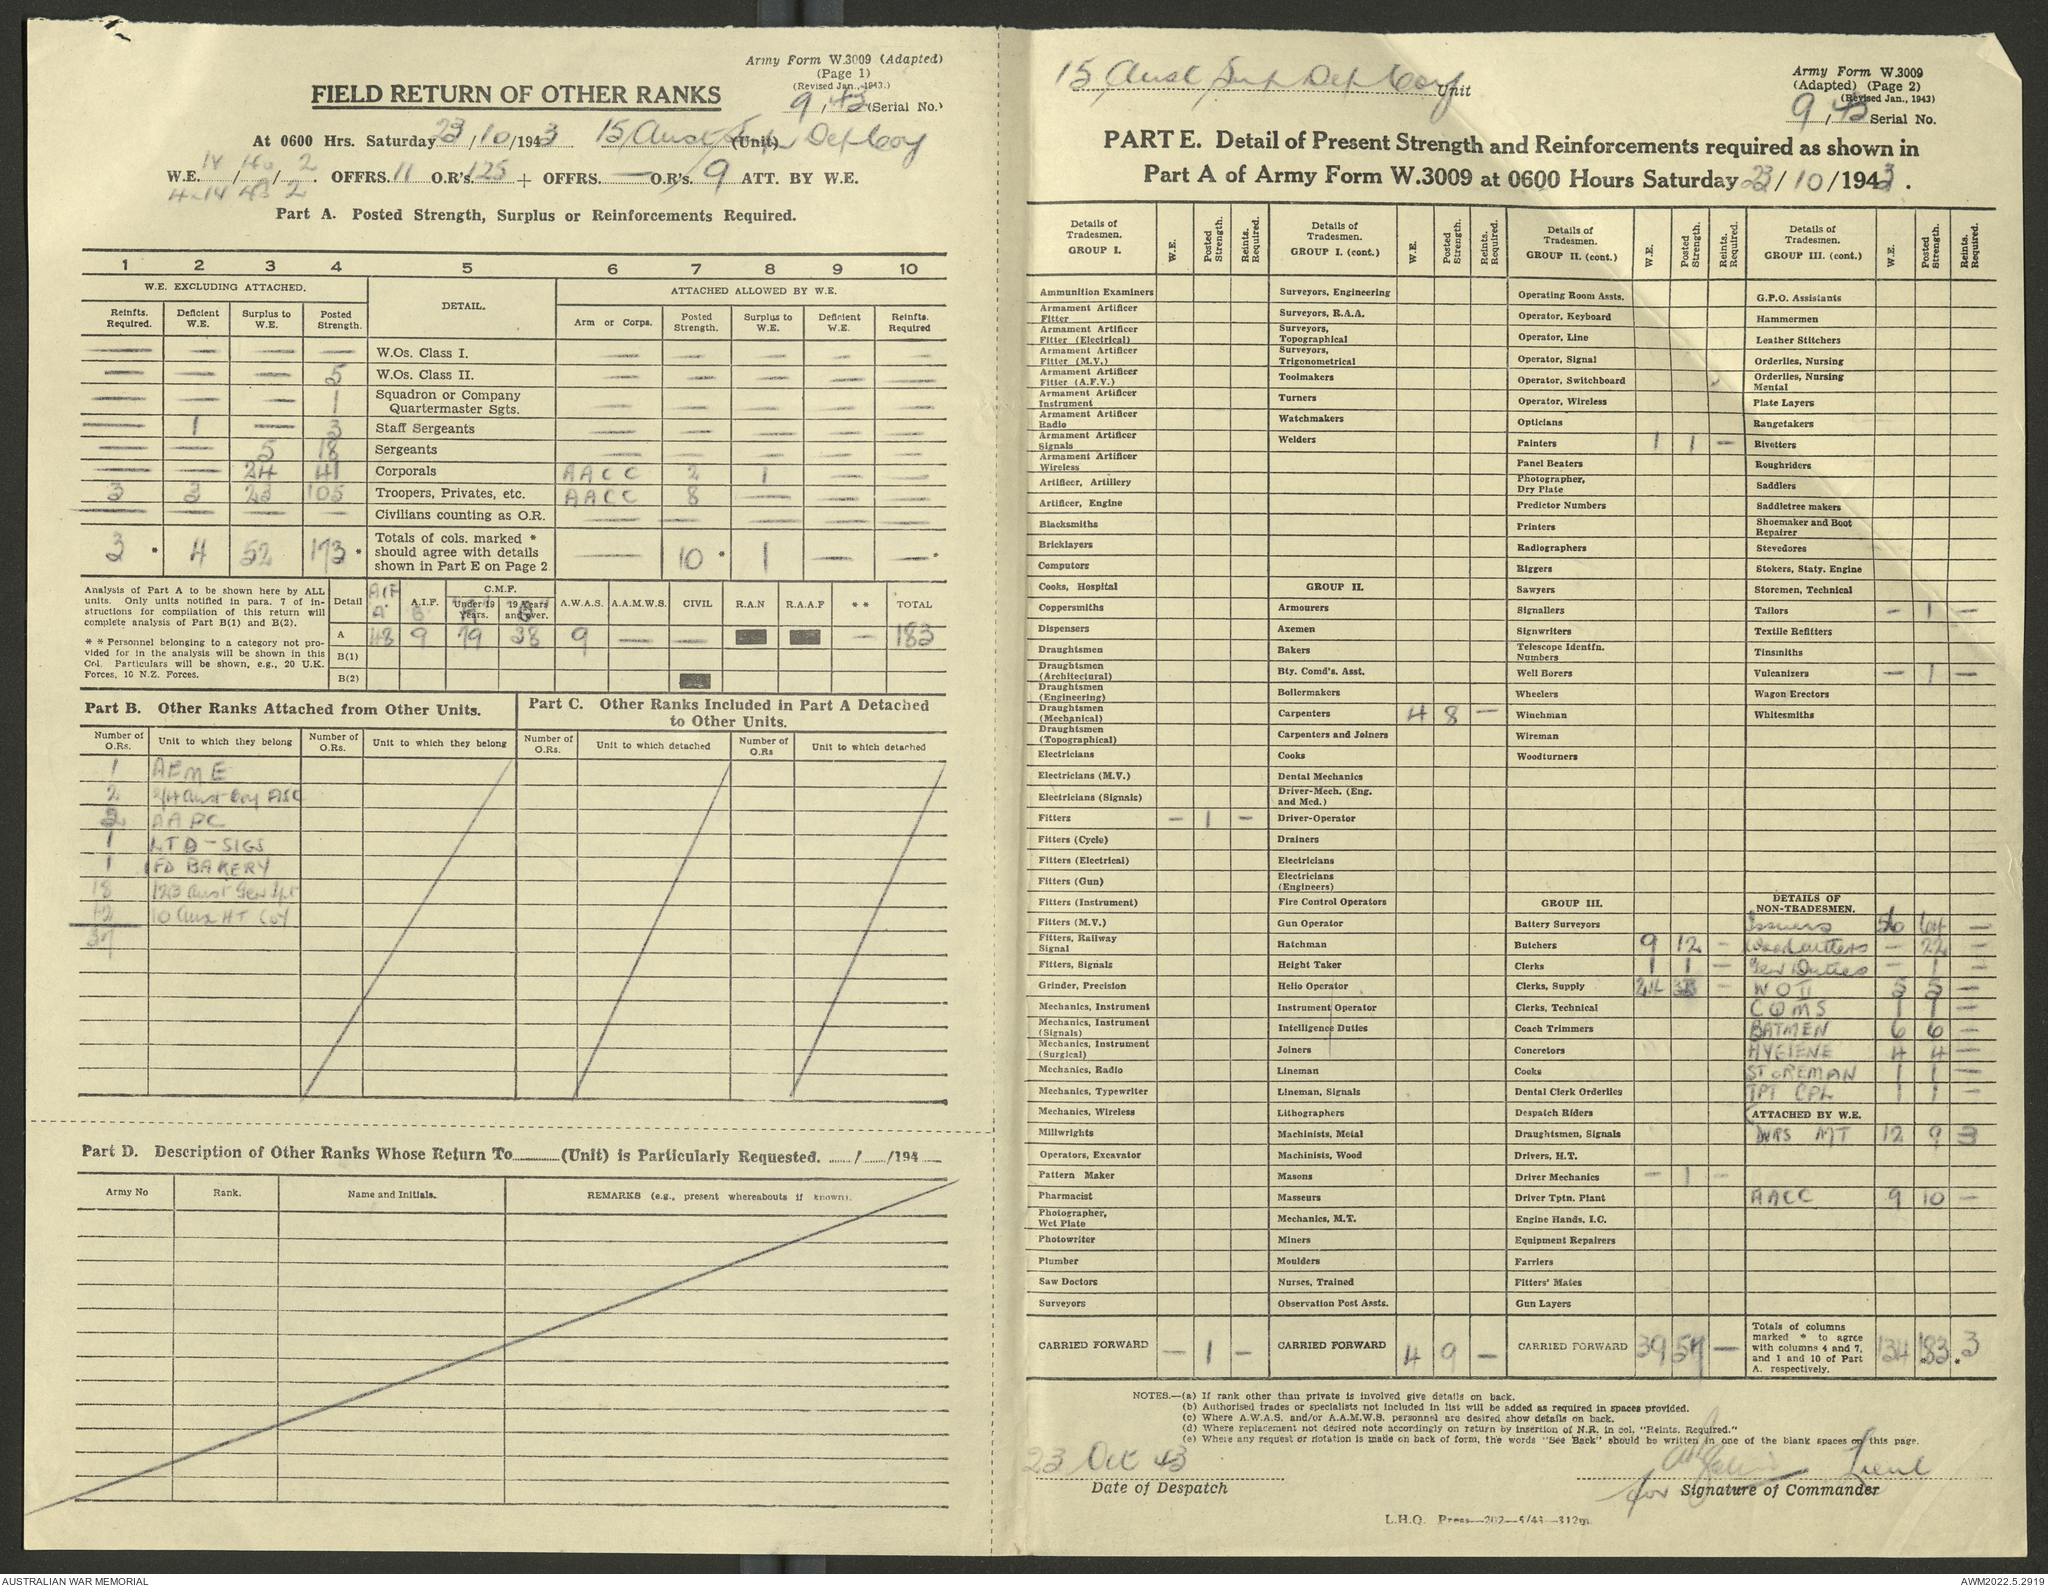 Army Form W.3009 (Adapted)
(Page 1)
(Revised Jan., 1943.)
FIELD RETURN OF OTHER RANKS
9/43 (Serial No.)
At 0600 Hrs. Saturday 23/10/1943 15 Aust Sup Dep Coy (Unit)
14 / 140 / 2
W.E. / / . OFFRS. 11 O.R's. 125 + OFFRS. — O.R's. 9 ATT. BY W.E.
4-14 43 2
Part A. Posted Strength, Surplus or Reinforcements Required.
1 2 3 4 5 6 7 8 9 10
W.E. EXCLUDING ATTACHED. DETAIL. ATTACHED ALLOWED BY W.E.
Reinfts. Required. Deficient W.E. Surplus to W.E. Posted Strength. Arm or Corps. Posted Strength. Surplus to W.E. Deficient W.E. Reinfts. Required
— — — — W.Os. Class I. — — — — —
— — — 5 W.Os. Class II. — — — — —
— — — 1 Squadron or Company Quartermaster Sgts. — — — — —
— 1 — 3 Staff Sergeants — — — — —
— — 5 18 Sergeants — — — — —
— — 24 41 Corporals AACC 2 1 — —
3 3 23 105 Troopers, Privates, etc. AACC 8 — — —
— — — — Civilians counting as O.R. — — — — —
3 * 4 52 173 * Totals of cols. marked * should agree with details shown in Part E on Page 2 — 10 * 1 — — *
Analysis of Part A to be shown here by ALL units. Only units notified in para. 7 of instructions for compilation of this return will complete analysis of Part B(1) and B(2).
* * Personnel belonging to a category not provided for in the analysis will be shown in this Col. Particulars will be shown, e.g., 20 U.K. Forces, 10 N.Z. Forces.
Detail AIF A A.I.F. B C.M.F. Under 19 Years. A 19 Years and over. B A.W.A.S. A.A.M.W.S. CIVIL R.A.N R.A.A.F * * TOTAL
A 48 9 79 38 9 — — — 183
B(1)
B(2)
Part B. Other Ranks Attached from Other Units.
Part C. Other Ranks Included in Part A Detached to Other Units.
Number of O.Rs. Unit to which they belong Number of O.Rs. Unit to which they belong Number of O.Rs. Unit to which detached Number of O.Rs Unit to which detached
1 AEME
2 2/4 Aust Coy ASC
2 AAPC
1 LTD - SIGS
1 FD BAKERY
18 123 Aust Gen Tpt
12 10 Aust HT Coy
37
Part D. Description of Other Ranks Whose Return To (Unit) is Particularly Requested. / /194
Army No Rank. Name and Initials. REMARKS (e.g., present whereabouts if known).
15 Aust Sup Dep Coy Unit
Army Form W.3009
(Adapted) (Page 2)
(Revised Jan., 1943)
9/43 Serial No.
PART E. Detail of Present Strength and Reinforcements required as shown in
Part A of Army Form W.3009 at 0600 Hours Saturday 23/10/1943.
Details of Tradesmen. GROUP I. W.E. Posted Strength. Reints. Required.
Ammunition Examiners
Armament Artificer Fitter
Armament Artificer Fitter (Electrical)
Armament Artificer Fitter (M.V.)
Armament Artificer Fitter (A.F.V.)
Armament Artificer Instrument
Armament Artificer Radio
Armament Artificer Signals
Armament Artificer Wireless
Artificer, Artillery
Artificer, Engine
Blacksmiths
Bricklayers
Computors
Cooks, Hospital
Coppersmiths
Dispensers
Draughtsmen
Draughtsmen (Architectural)
Draughtsmen (Engineering)
Draughtsmen (Mechanical)
Draughtsmen (Topographical)
Electricians
Electricians (M.V.)
Electricians (Signals)
Fitters — 1 —
Fitters (Cycle)
Fitters (Electrical)
Fitters (Gun)
Fitters (Instrument)
Fitters (M.V.)
Fitters, Railway Signal
Fitters, Signals
Grinder, Precision
Mechanics, Instrument
Mechanics, Instrument (Signals)
Mechanics, Instrument (Surgical)
Mechanics, Radio
Mechanics, Typewriter
Mechanics, Wireless
Millwrights
Operators, Excavator
Pattern Maker
Pharmacist
Photographer, Wet Plate
Photowriter
Plumber
Saw Doctors
Surveyors
CARRIED FORWARD — 1 —
Details of Tradesmen. GROUP I. (cont.) W.E. Posted Strength. Reints. Required.
Surveyors, Engineering
Surveyors, R.A.A.
Surveyors, Topographical
Surveyors, Trigonometrical
Toolmakers
Turners
Watchmakers
Welders
GROUP II.
Armourers
Axemen
Bakers
Bty. Comd's. Asst.
Boilermakers
Carpenters 4 8 —
Carpenters and Joiners
Cooks
Dental Mechanics
Driver-Mech. (Eng. and Med.)
Driver-Operator
Drainers
Electricians
Electricians (Engineers)
Fire Control Operators
Gun Operator
Hatchman
Height Taker
Helio Operator
Instrument Operator
Intelligence Duties
Joiners
Lineman
Lineman, Signals
Lithographers
Machinists, Metal
Machinists, Wood
Masons
Masseurs
Mechanics, M.T.
Miners
Moulders
Nurses, Trained
Observation Post Assts.
CARRIED FORWARD 4 9 —
Details of Tradesmen. GROUP II. (cont.) W.E. Posted Strength. Reints. Required.
Operating Room Assts.
Operator, Keyboard
Operator, Line
Operator, Signal
Operator, Switchboard
Operator, Wireless
Opticians
Painters 1 1 —
Panel Beaters
Photographer, Dry Plate
Predictor Numbers
Printers
Radiographers
Riggers
Sawyers
Signallers
Signwriters
Telescope Identfn. Numbers
Well Borers
Wheelers
Winchman
Wireman
Woodturners
GROUP III.
Battery Surveyors
Butchers 9 12 —
Clerks 1 1 —
Clerks, Supply 24 33 —
Clerks, Technical
Coach Trimmers
Concretors
Cooks
Dental Clerk Orderlies
Despatch Riders
Draughtsmen, Signals
Drivers, H.T.
Driver Mechanics — 1 —
Driver Tptn. Plant
Engine Hands, I.C.
Equipment Repairers
Farriers
Fitters' Mates
Gun Layers
CARRIED FORWARD 39 57 —
Details of Tradesmen. GROUP III. (cont.) W.E. Posted Strength. Reints. Required.
G.P.O. Assistants
Hammermen
Leather Stitchers
Orderlies, Nursing
Orderlies, Nursing Mental
Plate Layers
Rangetakers
Rivetters
Roughriders
Saddlers
Saddletree makers
Shoemaker and Boot Repairer
Stevedores
Stokers, Staty. Engine
Storemen, Technical
Tailors — 1 —
Textile Refitters
Tinsmiths
Vulcanizers — 1 —
Wagon Erectors
Whitesmiths
DETAILS OF NON-TRADESMEN.
Issuers 56 64 —
Woodcutters — 22 —
Gen Duties — 1 —
WO II 5 5 —
CQMS 1 1 —
BATMEN 6 6 —
HYGIENE 4 4 —
STOREMAN 1 1 —
TPT CPL 1 1 —
ATTACHED BY W.E.
DVRS MT 12 9 3
AACC 9 10 —
Totals of columns marked * to agree with columns 4 and 7, and 1 and 10 of Part A. respectively. 134 183 * 3 *
NOTES.—(a) If rank other than private is involved give details on back.
(b) Authorised trades or specialists not included in list will be added as required in spaces provided.
(c) Where A.W.A.S. and/or A.A.M.W.S. personnel are desired show details on back.
(d) Where replacement not desired note accordingly on return by insertion of N.R. in col. "Reints. Required."
(e) Where any request or notation is made on back of form, the words "See Back" should be written in one of the blank spaces on this page.
23 Oct 43
Date of Despatch
for Lieut
Signature of Commander
L.H.Q. Press—202—5/43—312m.
AUSTRALIAN WAR MEMORIAL
AWM2022.5.2919